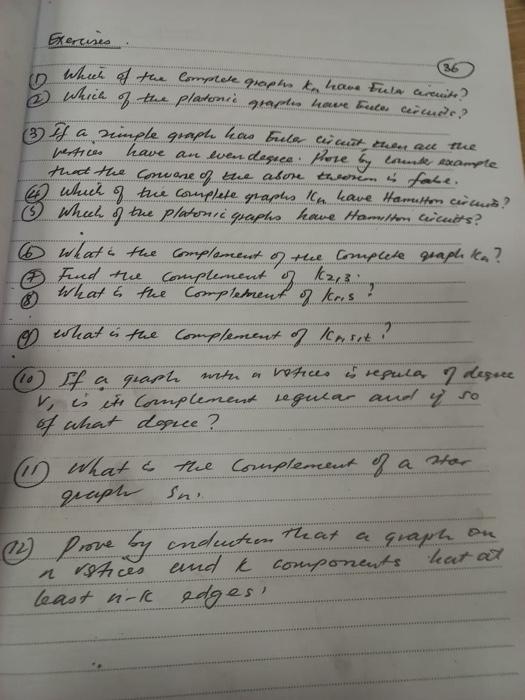 Exercises.
36
(1) Which of the Complete graphs Kn have Euler circuits?
(2) Which of the platonic graphs have Euler circuits?
(3) If a simple graph has Euler circuit, then all the
vertices have an even degree. Prove by counter example
that the Converse of the above theorem is false.
(4) Which of the complete graphs Kn have Hamilton circuits?
(5) Which of the platonic graphs have Hamilton circuits?
(6) What is the complement of the Complete graph Kn?
(7) Find the complement of K2,3.
(8) What is the Complement of Kr,s?
(9) What is the Complement of Kr,s,t?
(10) If a graph with n vertices is regular of degree
r, is its Complement regular and if so
of what degree?
(11) What is the Complement of a star
graph Sn.
(12) Prove by induction that a graph on
n vertices and k components hat at
least n-k edges.